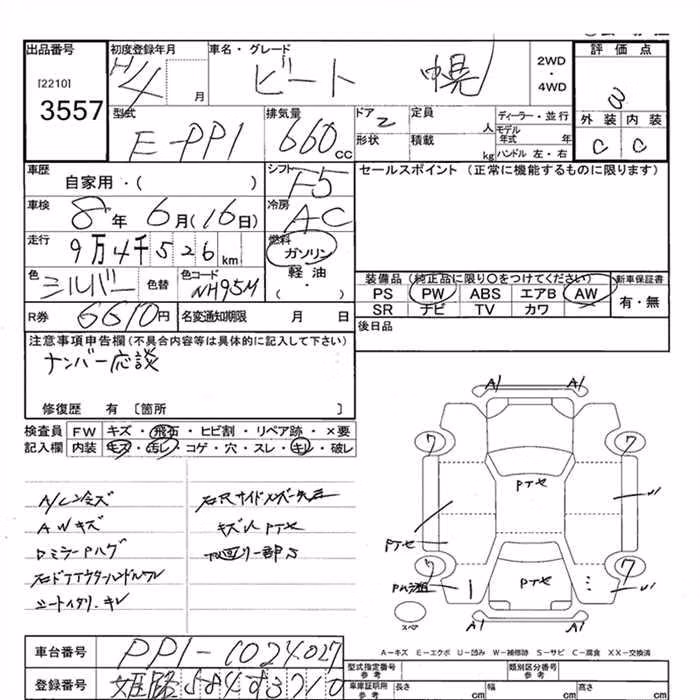 出品番号
[2210]
3557
初度登録年月
H4 月
車名・グレード
ビート 幌
2WD
・
4WD
評価点
3
外装 内装
C C
型式
E-PP1
排気量
660 cc
ドア 2
形状
定員 人
積載 kg
ディーラー・並行
モデル年式 年
ハンドル 左・右
車歴
自家用・( )
シフト
F5
セールスポイント (正常に機能するものに限ります)
車検
8年 6月(16日)
冷房
AC
走行
9万4千526km
燃料
ガソリン
軽油
・
( )
色
シルバー 色替
色コード
NH95M
装備品 (純正品に限り○をつけてください)
PS PW ABS エアB AW
SR ナビ TV カワ
新車保証書
有・無
R券 6610円
名変通知期限 月 日
後日品
注意事項申告欄(不具合内容等は具体的に記入して下さい)
ナンバー応談
修復歴 有 [箇所 ]
検査員 FW キズ・飛石・ヒビ割・リペア跡・×要
記入欄 内装 キズ・汚レ・コゲ・穴・スレ・キレ・破レ
AWキズ
DミラーPハゲ
A1 A1
ワ ワ
Pナセ
Pナセ
Pナセ
ワ ワ
スペア
A1 A1
A-キズ E-エクボ U-凹み W-補修跡 S-サビ C-腐食 XX-交換済
車台番号
PP1-1024027
登録番号
姫路
型式指定番号
参考
類別区分番号
参考
車庫証明用
参考
長さ cm
幅 cm
高さ cm